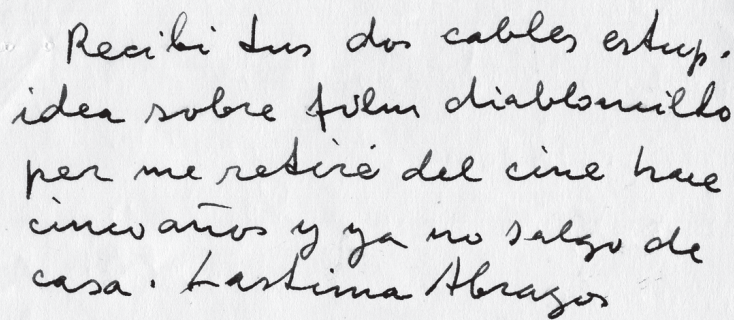 Recibi tus dos cables estup.
idea sobre film diablomillo
per me retiré del cine hace
cinco años y ya no salgo de
casa. Lastima Abrazos